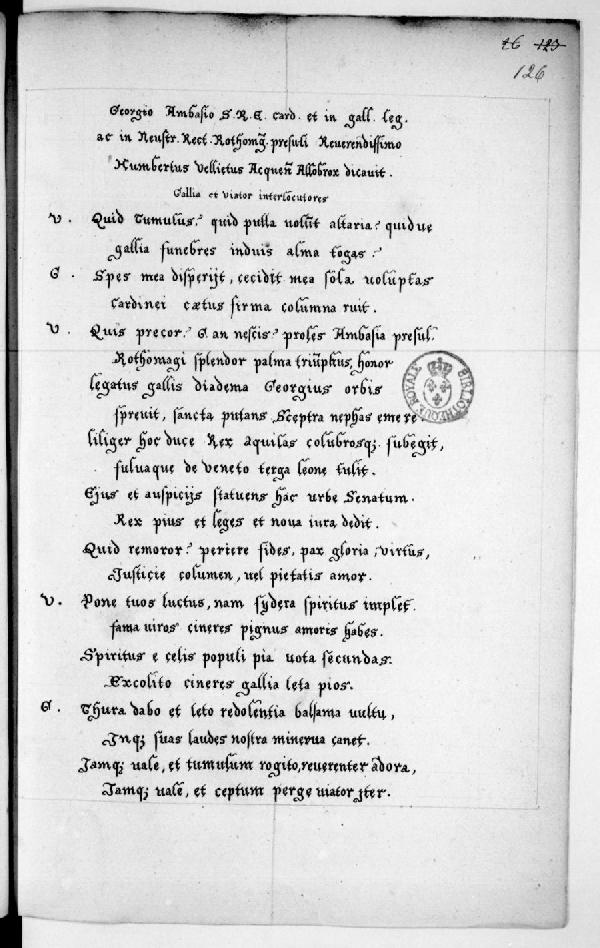 16 123
126
Georgio Ambasio S. R. E. Card. et in gall. leg.
ac in Neustr. Rect. Rothomg̃. presuli Reuerendissimo
Humbertus Vellietus Acqueñ Allobrox dicauit.
Gallia et viator interlocutores
V. Quid tumulus? quid pulla nolũt altaria? quidue
gallia funebres induis alma togas?
G. Spes mea disperijt, cecidit mea sola uoluptas
Cardinei cætus firma columna ruit.
V. Quis precor? G an nescis? proles Ambasia presul.
Rothomagi splendor palma triũphus, honor
legatus gallis diadema Georgius orbis
spreuit, sancta putans sceptra nephas emere
liliger hoc duce Rex aquilas colubrosq; subegit,
fuluaque de veneto terga leone tulit.
Ejus et auspicijs statuens hac urbe Senatum.
Rex pius et leges et noua iura dedit.
Quid remoror? periere fides, pax gloria, virtus,
Justicie columen, uel pietatis amor.
V. Pone tuos luctus, nam sydera spiritus implet
fama uiros cineres pignus amoris habes.
Spiritus e celis populi pia uota secundas.
Excolito cineres gallia leta pios.
G. Thura dabo et leto redolentia balsama uultu,
Jnq; suas laudes nostra minerua canet.
Jamq; uale, et tumulum rogito, reuerenter adora,
Jamq; uale, et ceptum perge uiator jter.
BIBLIOTHECÆ REGIÆ